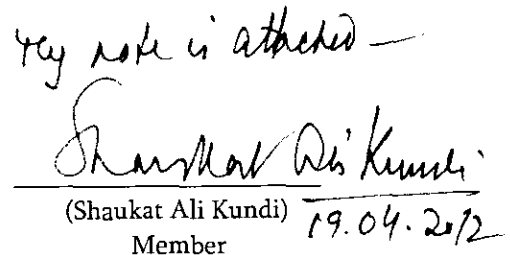 My note is attached —
Shaukat Ali Kundi
(Shaukat Ali Kundi)
19.04.2012
Member